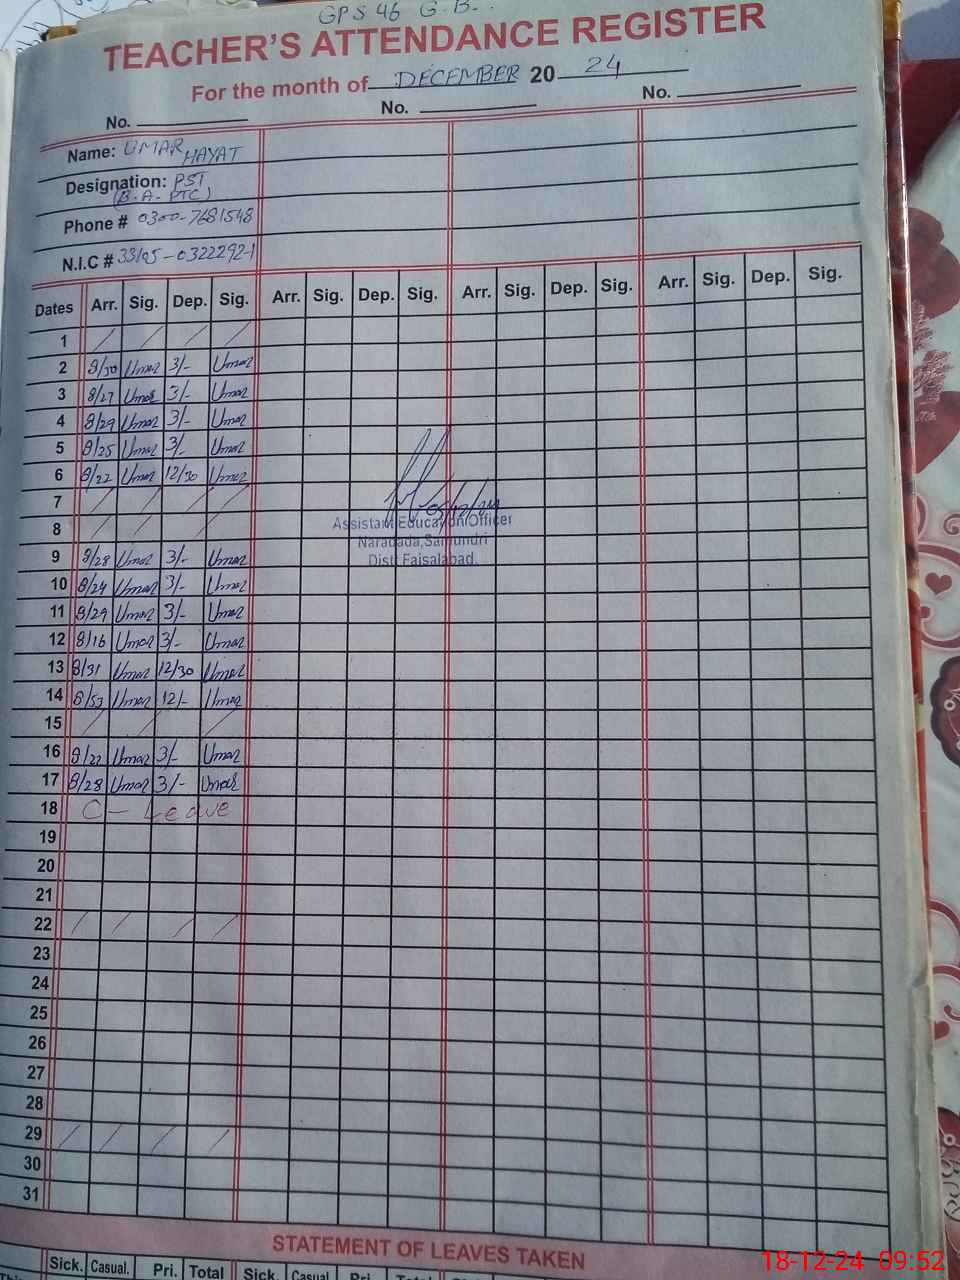 GPS 46 G.B.
TEACHER'S ATTENDANCE REGISTER
For the month of DECEMBER 20 24
No. No. No.
Name: UMAR HAYAT
Designation: PST
(B.A- PTC)
Phone # 0300-7681548
N.I.C #
Dates Arr. Sig. Dep. Sig. Arr. Sig. Dep. Sig. Arr. Sig. Dep. Sig. Arr. Sig. Dep. Sig.
1
2 8/30 Umar 3/- Umar
3 8/27 Umar 3/- Umar
4 8/29 Umar 3/- Umar
5 8/25 Umar 3/- Umar
6 8/22 Umar 12/30 Umar
7
8
Assistant Education Officer
Naradada, Samundri
Distt Faisalabad.
9 8/28 Umar 3/- Umar
10 8/24 Umar 3/- Umar
11 8/29 Umar 3/- Umar
12 8/16 Umar 3/- Umar
13 8/31 Umar 12/30 Umar
14 8/53 Umar 12/- Umar
15
16 8/22 Umar 3/- Umar
17 8/28 Umar 3/- Umar
18 C- Leave
19
20
21
22
23
24
25
26
27
28
29
30
31
STATEMENT OF LEAVES TAKEN
Sick. Casual. Pri. Total Sick. Casual Pri. Total
18-12-24 09:52